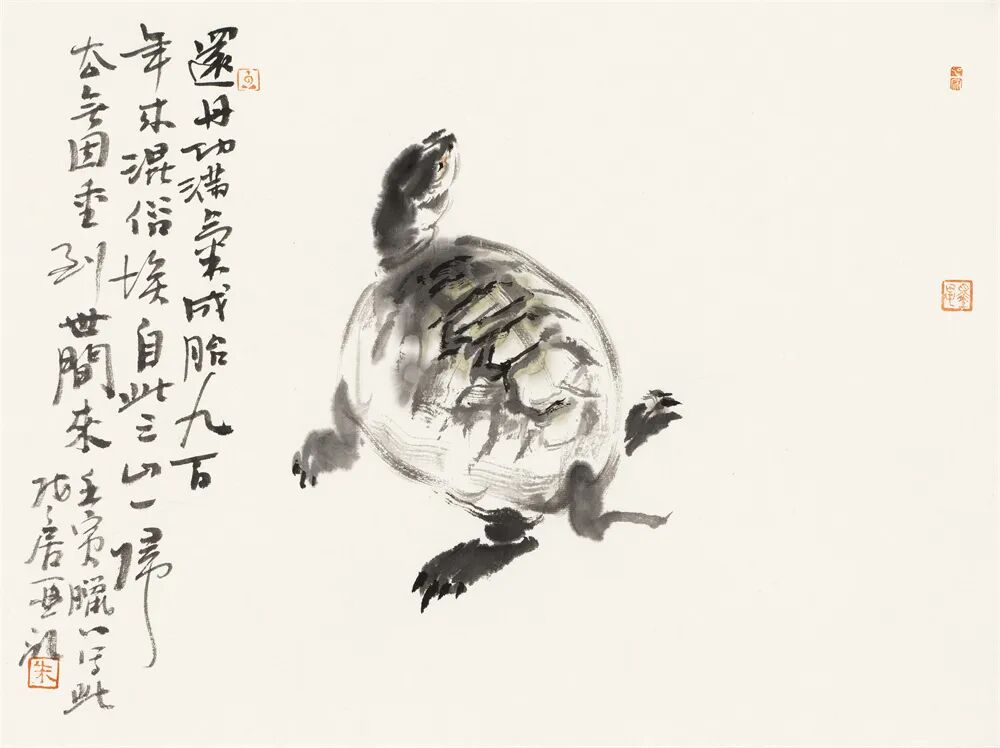 還丹功滿氣成胎九百
年来混俗埃自此三山一歸
去無因重到世間来
壬寅臘八写此
居亞
朱